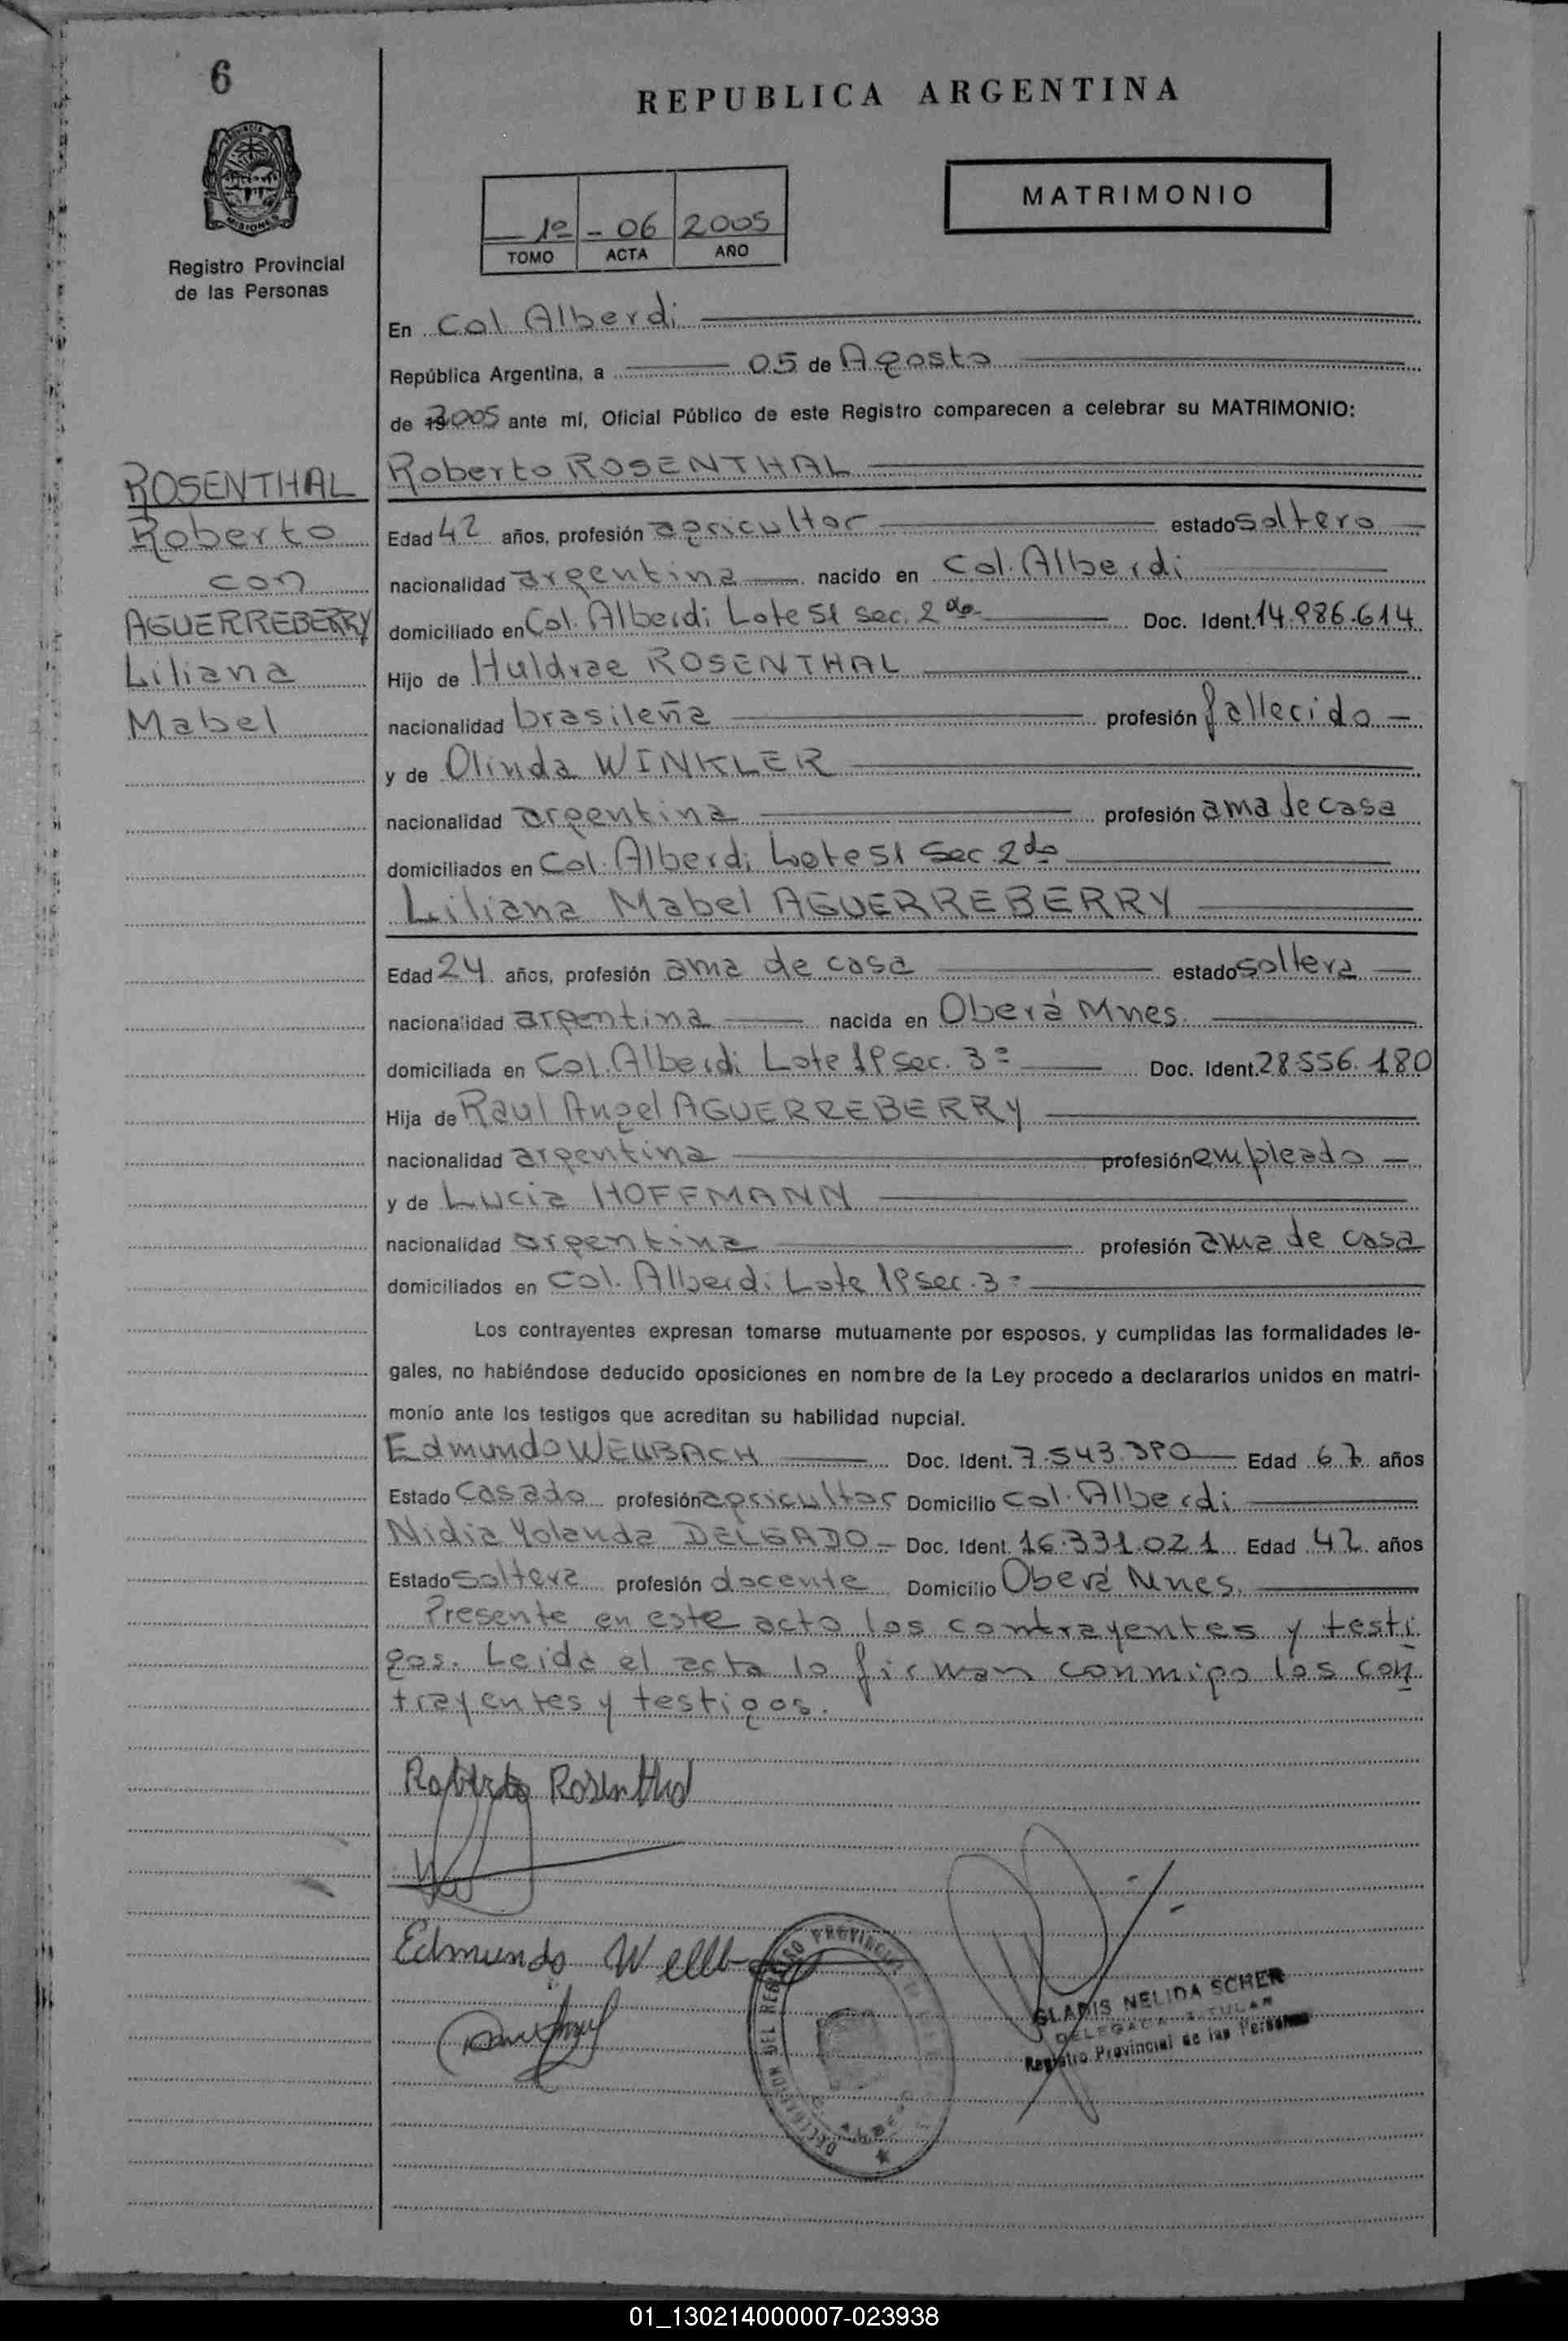 6
REPUBLICA ARGENTINA
MATRIMONIO
1º - 06 2005
TOMO ACTA AÑO
Registro Provincial
de las Personas
En Col. Alberdi
República Argentina, a 05 de Agosto
de 2005 ante mí, Oficial Público de este Registro comparecen a celebrar su MATRIMONIO:
ROSENTHAL
Roberto
con
AGUERREBERRY
Liliana
Mabel
Roberto ROSENTHAL
Edad 42 años, profesión agricultor estado soltero
nacionalidad argentina nacido en Col. Alberdi
domiciliado en Col. Alberdi Lote 51 sec. 2da Doc. Ident. 14.986.614
Hijo de ROSENTHAL
nacionalidad brasileña profesión fallecido
y de Olinda WINKLER
nacionalidad argentina profesión ama de casa
domiciliados en Col. Alberdi Lote 51 Sec. 2da
Liliana Mabel AGUERREBERRY
Edad 24 años, profesión ama de casa estado soltera
nacionalidad argentina nacida en Oberá Mnes.
domiciliada en Col. Alberdi Lote sec. 3ª Doc. Ident. 28.556.180
Hija de Raul Angel AGUERREBERRY
nacionalidad argentina profesión empleado
y de Lucia HOFFMANN
nacionalidad argentina profesión ama de casa
domiciliados en Col. Alberdi Lote sec. 3ª
Los contrayentes expresan tomarse mutuamente por esposos, y cumplidas las formalidades le-
gales, no habiéndose deducido oposiciones en nombre de la Ley procedo a declararlos unidos en matri-
monio ante los testigos que acreditan su habilidad nupcial.
Edmundo WELLBACH Doc. Ident. 7.543.390 Edad 67 años
Estado Casado profesión agricultor Domicilio Col. Alberdi
Nidia Yolanda DELGADO Doc. Ident. 16.331.021 Edad 42 años
Estado soltera profesión docente Domicilio Oberá Mnes.
Presente en este acto los contrayentes y testi
gos. Leida el acta lo firman conmigo los con
trayentes y testigos.
Roberto Rosenthal
Edmundo
GLADIS NELIDA SCHER
DELEGADA TITULAR
Registro Provincial de las Personas
DELEGACION DEL REGISTRO PROVINCIAL
01_130214000007-023938